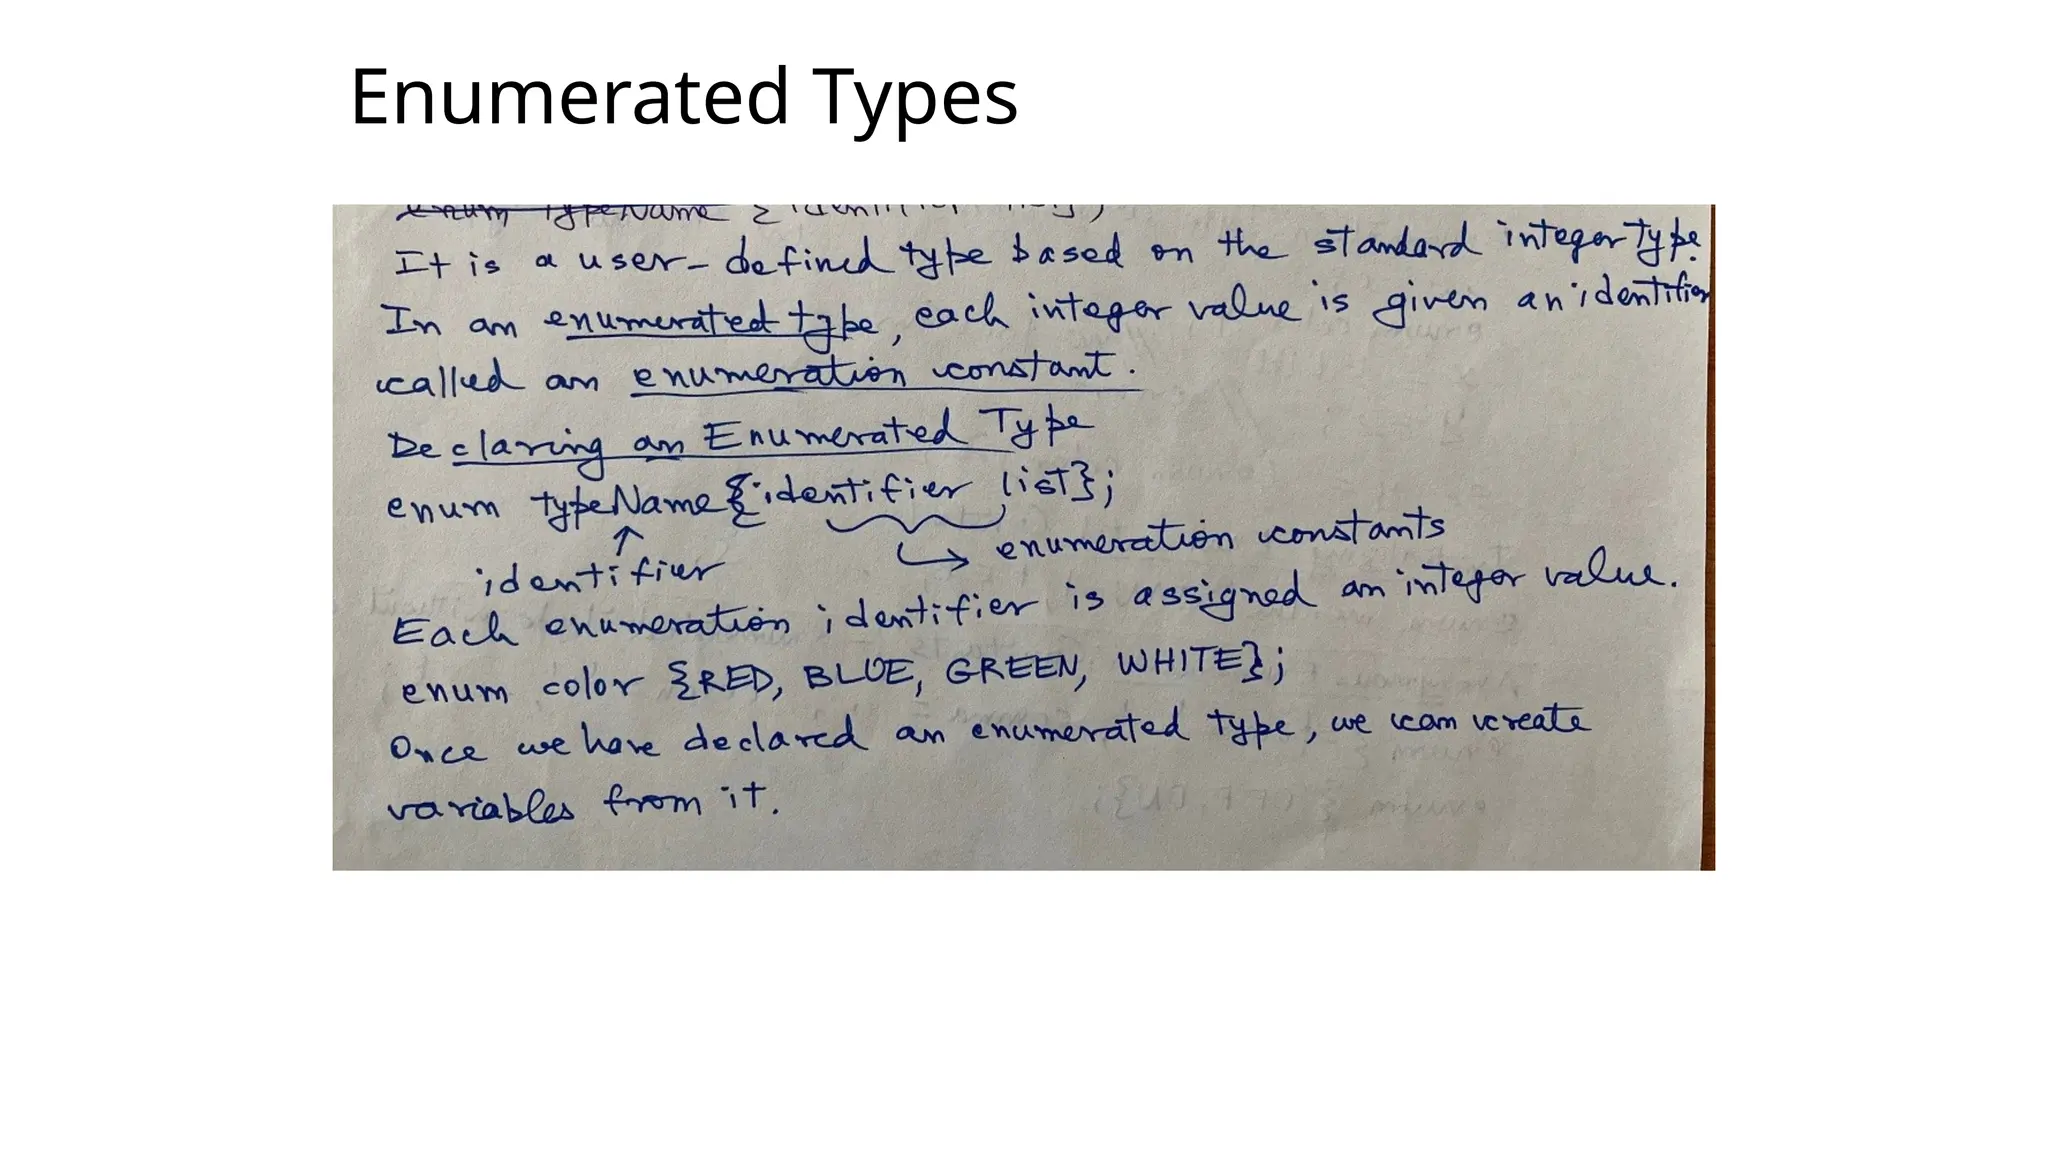 Enumerated Types
enum typeName {identifier
It is a user-defined type based on the standard integer type.
In an enumerated type, each integer value is given an identifier
called an enumeration constant.
Declaring an Enumerated Type
enum typeName {identifier list};
identifier
enumeration constants
Each enumeration identifier is assigned an integer value.
enum color {RED, BLUE, GREEN, WHITE};
Once we have declared an enumerated type, we can create
variables from it.